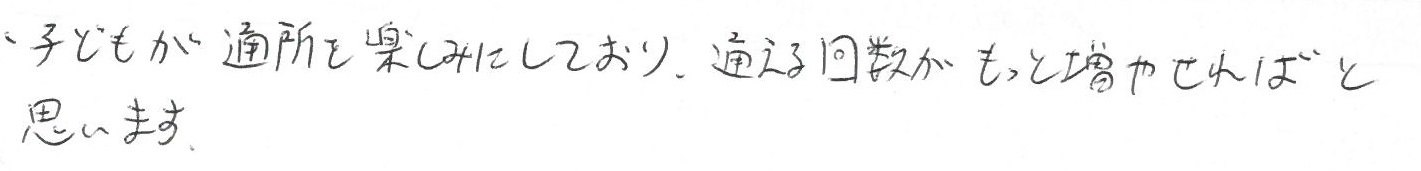 ・子どもが通所を楽しみにしており、通える回数がもっと増やせればと
思います。